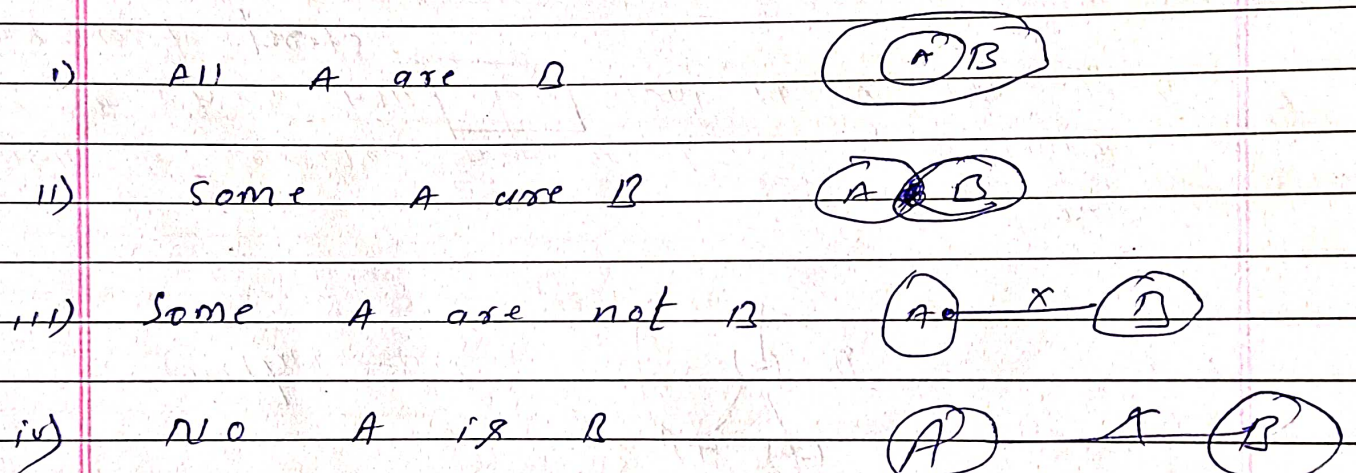 i) All A are B A B
ii) Some A are B A B
iii) Some A are not B A x B
iv) No A is B A B